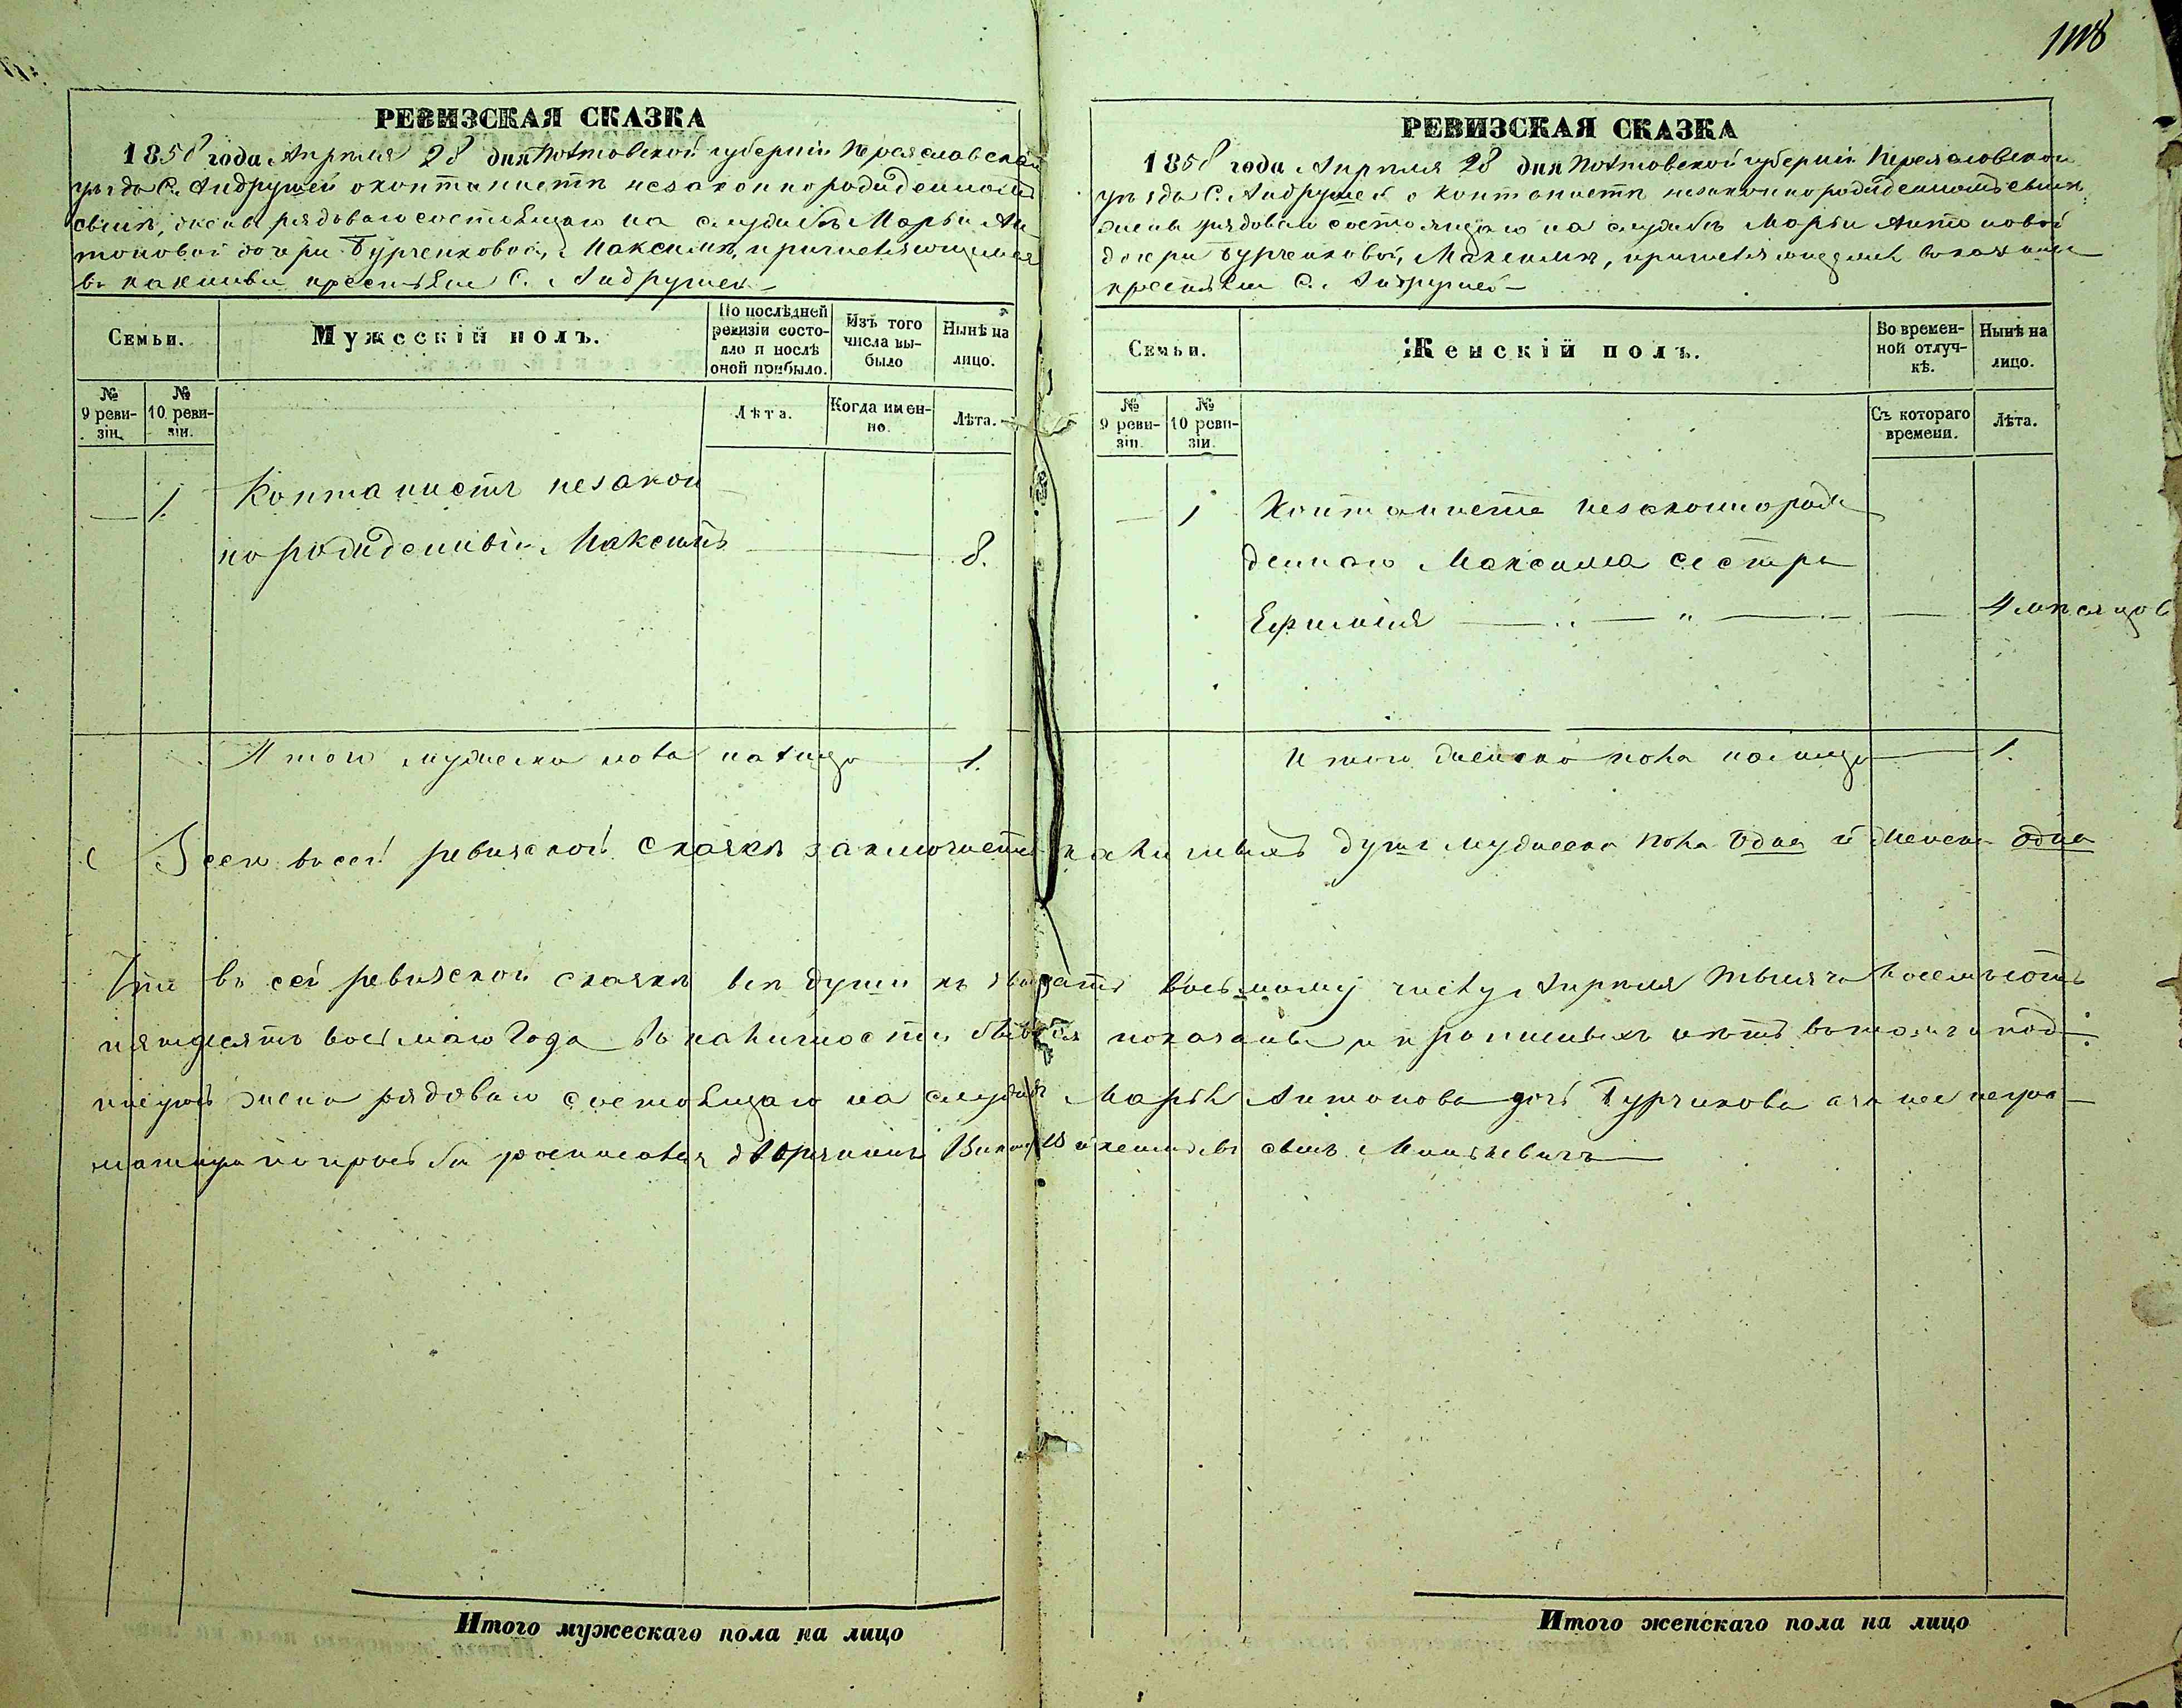 1118
РЕВИЗСКАЯ СКАЗКА
1858 года Апреля 28 дня Полтовской губерніи Переяславской
уезда С. Андрушей о контанисте незаконнорожденномъ
сыне, жены рядоваго состоящаго на службе Марьи Ан
тоновой дочери Бурченковой, Максиме, причисляющемся
в казенныи кресьтяне С. Андрушей
Семьи.
Мужескій полъ.
По послѣдней ревизіи состояло и послѣ оной прибыло.
Изъ того числа выбыло
Нынѣ на лицо.
№ 9 ревизіи.
№ 10 ревизіи.
Лѣта.
Когда именно.
Лѣта.
1 Контанистъ незакон
норожденный Максимъ 8.
Итого мужеска пола налицо 1.
РЕВИЗСКАЯ СКАЗКА
1858 года Апреля 28 дня Полтовской губерніи Переяславской
уезда С. Андрушей о контанисте незаконнорожденномъ сыне
жены рядоваго состоящаго на службе Марьи Антоновой
дочери Бурченковой, Максиме, причисляющемся в казенныи
кресьтяне С. Андрушей
Семьи.
Женскій полъ.
Во временной отлучкѣ.
Нынѣ на лицо.
№ 9 ревизіи.
№ 10 ревизіи.
Съ котораго времени.
Лѣта.
1 Контаниста незаконнорож
деннаго Максима сестра
Ефимія 4 месяцов
Итого женска пола налицо 1.
Всего в сей ревизской сказке заключается наличныхъ душъ мужеска пола одна и женска одна
Что в сей ревизской сказке все души къ двадцать восьмому числу Апреля тысяча восемьсотъ
пятдесятъ восьмаго года в наличности бывшія показаны и прописныхъ нетъ в томъ и под
писуюсь жена рядоваго состоящаго на службе Марья Антонова дочь Бурчикова а за нее неграмотную по прозьбе росписался дворянинъ сынъ
Итого мужескаго пола на лицо
Итого женскаго пола на лицо